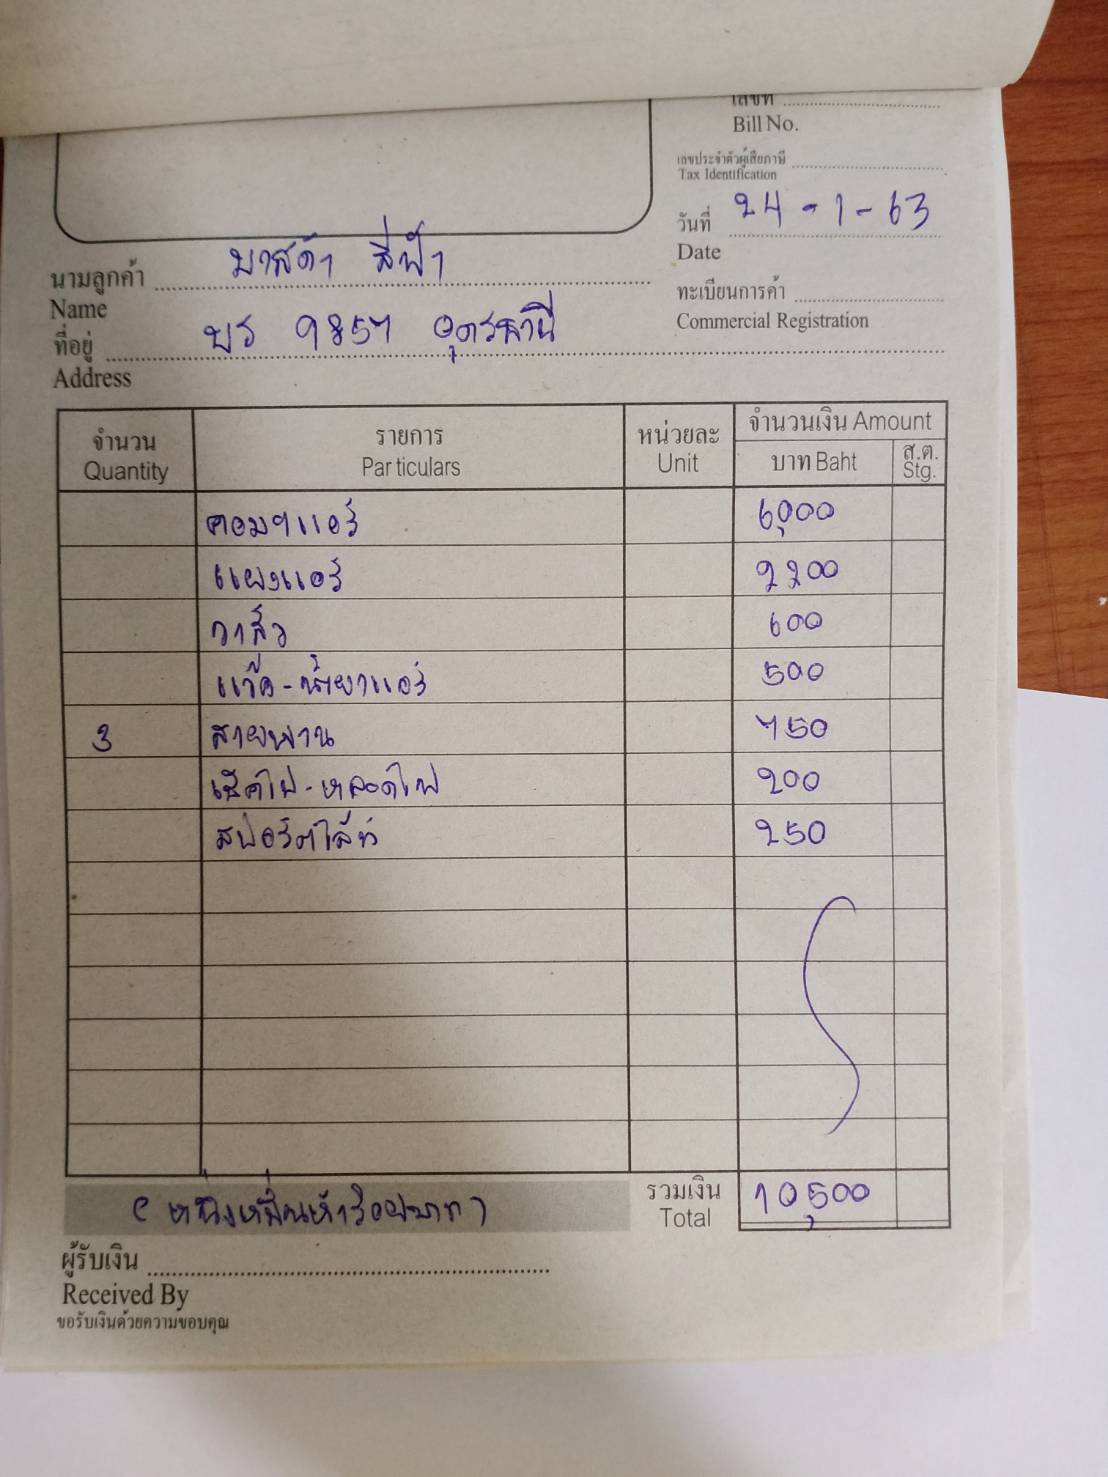 เลขที่
Bill No.
เลขประจำตัวผู้เสียภาษี
Tax Identification
วันที่ 24-1-63
Date
นามลูกค้า มาสด้า สีฟ้า
Name
ทะเบียนการค้า
Commercial Registration
ที่อยู่ บร 9857 อุดรธานี
Address
จำนวน รายการ หน่วยละ จำนวนเงิน Amount
Quantity Particulars Unit บาท Baht ส.ต. Stg.
คอมฯแอร์ 6,000
แผงแอร์ 2200
วาล์ว 600
แว๊ค-น้ำยาแอร์ 500
3 สายพาน 750
เช็คไฟ-หลอดไฟ 200
สปอร์ตไล้ท์ 250
(หนึ่งหมื่นห้าร้อยบาท) รวมเงิน 10,500
Total
ผู้รับเงิน
Received By
ขอรับเงินด้วยความขอบคุณ